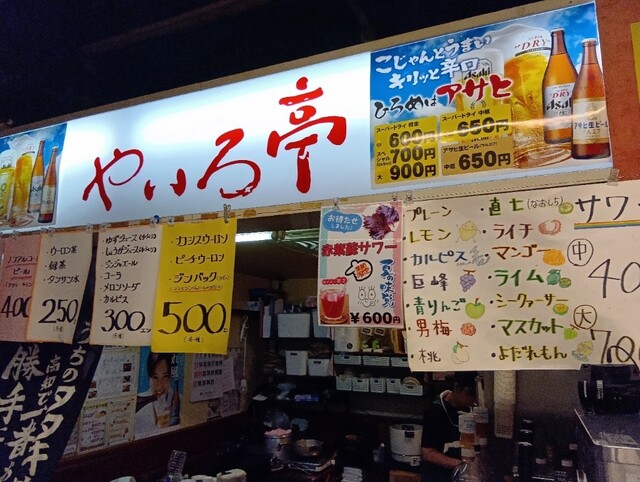 やいろ亭
こじゃんとうまい
キリッと辛口
ひろめはアサヒ
スーパードライ 中瓶
650円
中 600円
700円
大 900円
アサヒ生ビール
中瓶 650円
Asahi
DRY
400
・ウーロン茶
・緑茶
・タンサン水
250
・ゆずジュース
・しょうがジュース
・ジンジャエール
・コーラ
・メロンソーダ
・カルピス
300エン
・カシスウーロン
・ピーチウーロン
・ジンバック
500エン
お待たせしました!
赤紫蘇サワー
夏の味覚
¥600円
・プレーン
・レモン
・カルピス
・巨峰
・青りんご
・男梅
・桃
・直七(なおしち)
・ライチ
・マンゴー
・ライム
・シークヮーサー
・マスカット
・よだれもん
サワー
中
大
うちの
高知で
多分
勝手